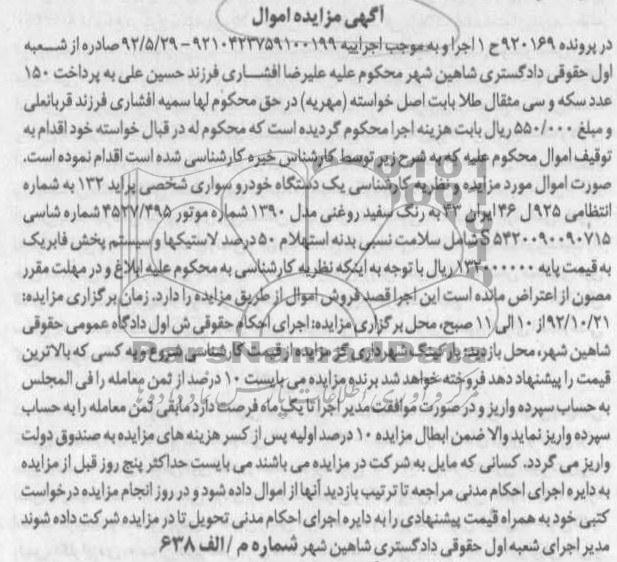 آگهی مزایده اموال
در پرونده ۹۲۰۱۶۹ ح ۱ اجرا و به موجب اجراییه ۹۲۱۰۴۲۳۷۵۹۱۰۰۱۹۹ – ۹۲/۵/۲۹ صادره از شعبه
اول حقوقی دادگستری شاهین شهر محکوم علیه علیرضا افشاری فرزند حسین علی به پرداخت ۱۵۰
عدد سکه و سی مثقال طلا بابت اصل خواسته (مهریه) در حق محکوم لها سمیه افشاری فرزند قربانعلی
و مبلغ ۵۵۰/۰۰۰ ریال بابت هزینه اجرا محکوم گردیده است که محکوم له در قبال خواسته خود اقدام به
توقیف اموال محکوم علیه که به شرح زیر توسط کارشناس خبره کارشناسی شده است اقدام نموده است.
صورت اموال مورد مزایده و نظریه کارشناسی یک دستگاه خودرو سواری شخصی پراید ۱۳۲ به شماره
انتظامی ۹۲۵ ل ۴۶ ایران ۴۳ به رنگ سفید روغنی مدل ۱۳۹۰ شماره موتور ۴۵۲۷/۴۹۵ شماره شاسی
S۵۴۲۰۰۹۰۰۹۰۷۱۵ شامل سلامت نسبی بدنه استهلام ۵۰ درصد لاستیکها و سیستم پخش فابریک
به قیمت پایه ریال با توجه به اینکه نظریه کارشناسی به محکوم علیه ابلاغ و در مهلت مقرر
مصون از اعتراض مانده است این اجرا قصد فروش اموال از طریق مزایده را دارد. زمان برگزاری مزایده:
۹۲/۱۰/۲۱ از ۱۰ الی ۱۱ صبح، محل برگزاری مزایده: اجرای احکام حقوقی ش اول دادگاه عمومی حقوقی
شاهین شهر، محل بازدید: پارکینگ شهرداری گز مزایده از قیمت کارشناسی شروع و به کسی که بالاترین
قیمت را پیشنهاد دهد فروخته خواهد شد برنده مزایده می بایست ۱۰ درصد از ثمن معامله را فی المجلس
به حساب سپرده واریز و در صورت موافقت مدیر اجرا تا یک ماه فرصت دارد مابقی ثمن معامله را به حساب
سپرده واریز نماید والا ضمن ابطال مزایده ۱۰ درصد اولیه پس از کسر هزینه های مزایده به صندوق دولت
واریز می گردد. کسانی که مایل به شرکت در مزایده می باشند می بایست حداکثر پنج روز قبل از مزایده
به دایره اجرای احکام مدنی مراجعه تا ترتیب بازدید آنها از اموال داده شود و در روز انجام مزایده درخواست
کتبی خود به همراه قیمت پیشنهادی را به دایره اجرای احکام مدنی تحویل تا در مزایده شرکت داده شوند
مدیر اجرای شعبه اول حقوقی دادگستری شاهین شهر شماره م / الف ۶۳۸